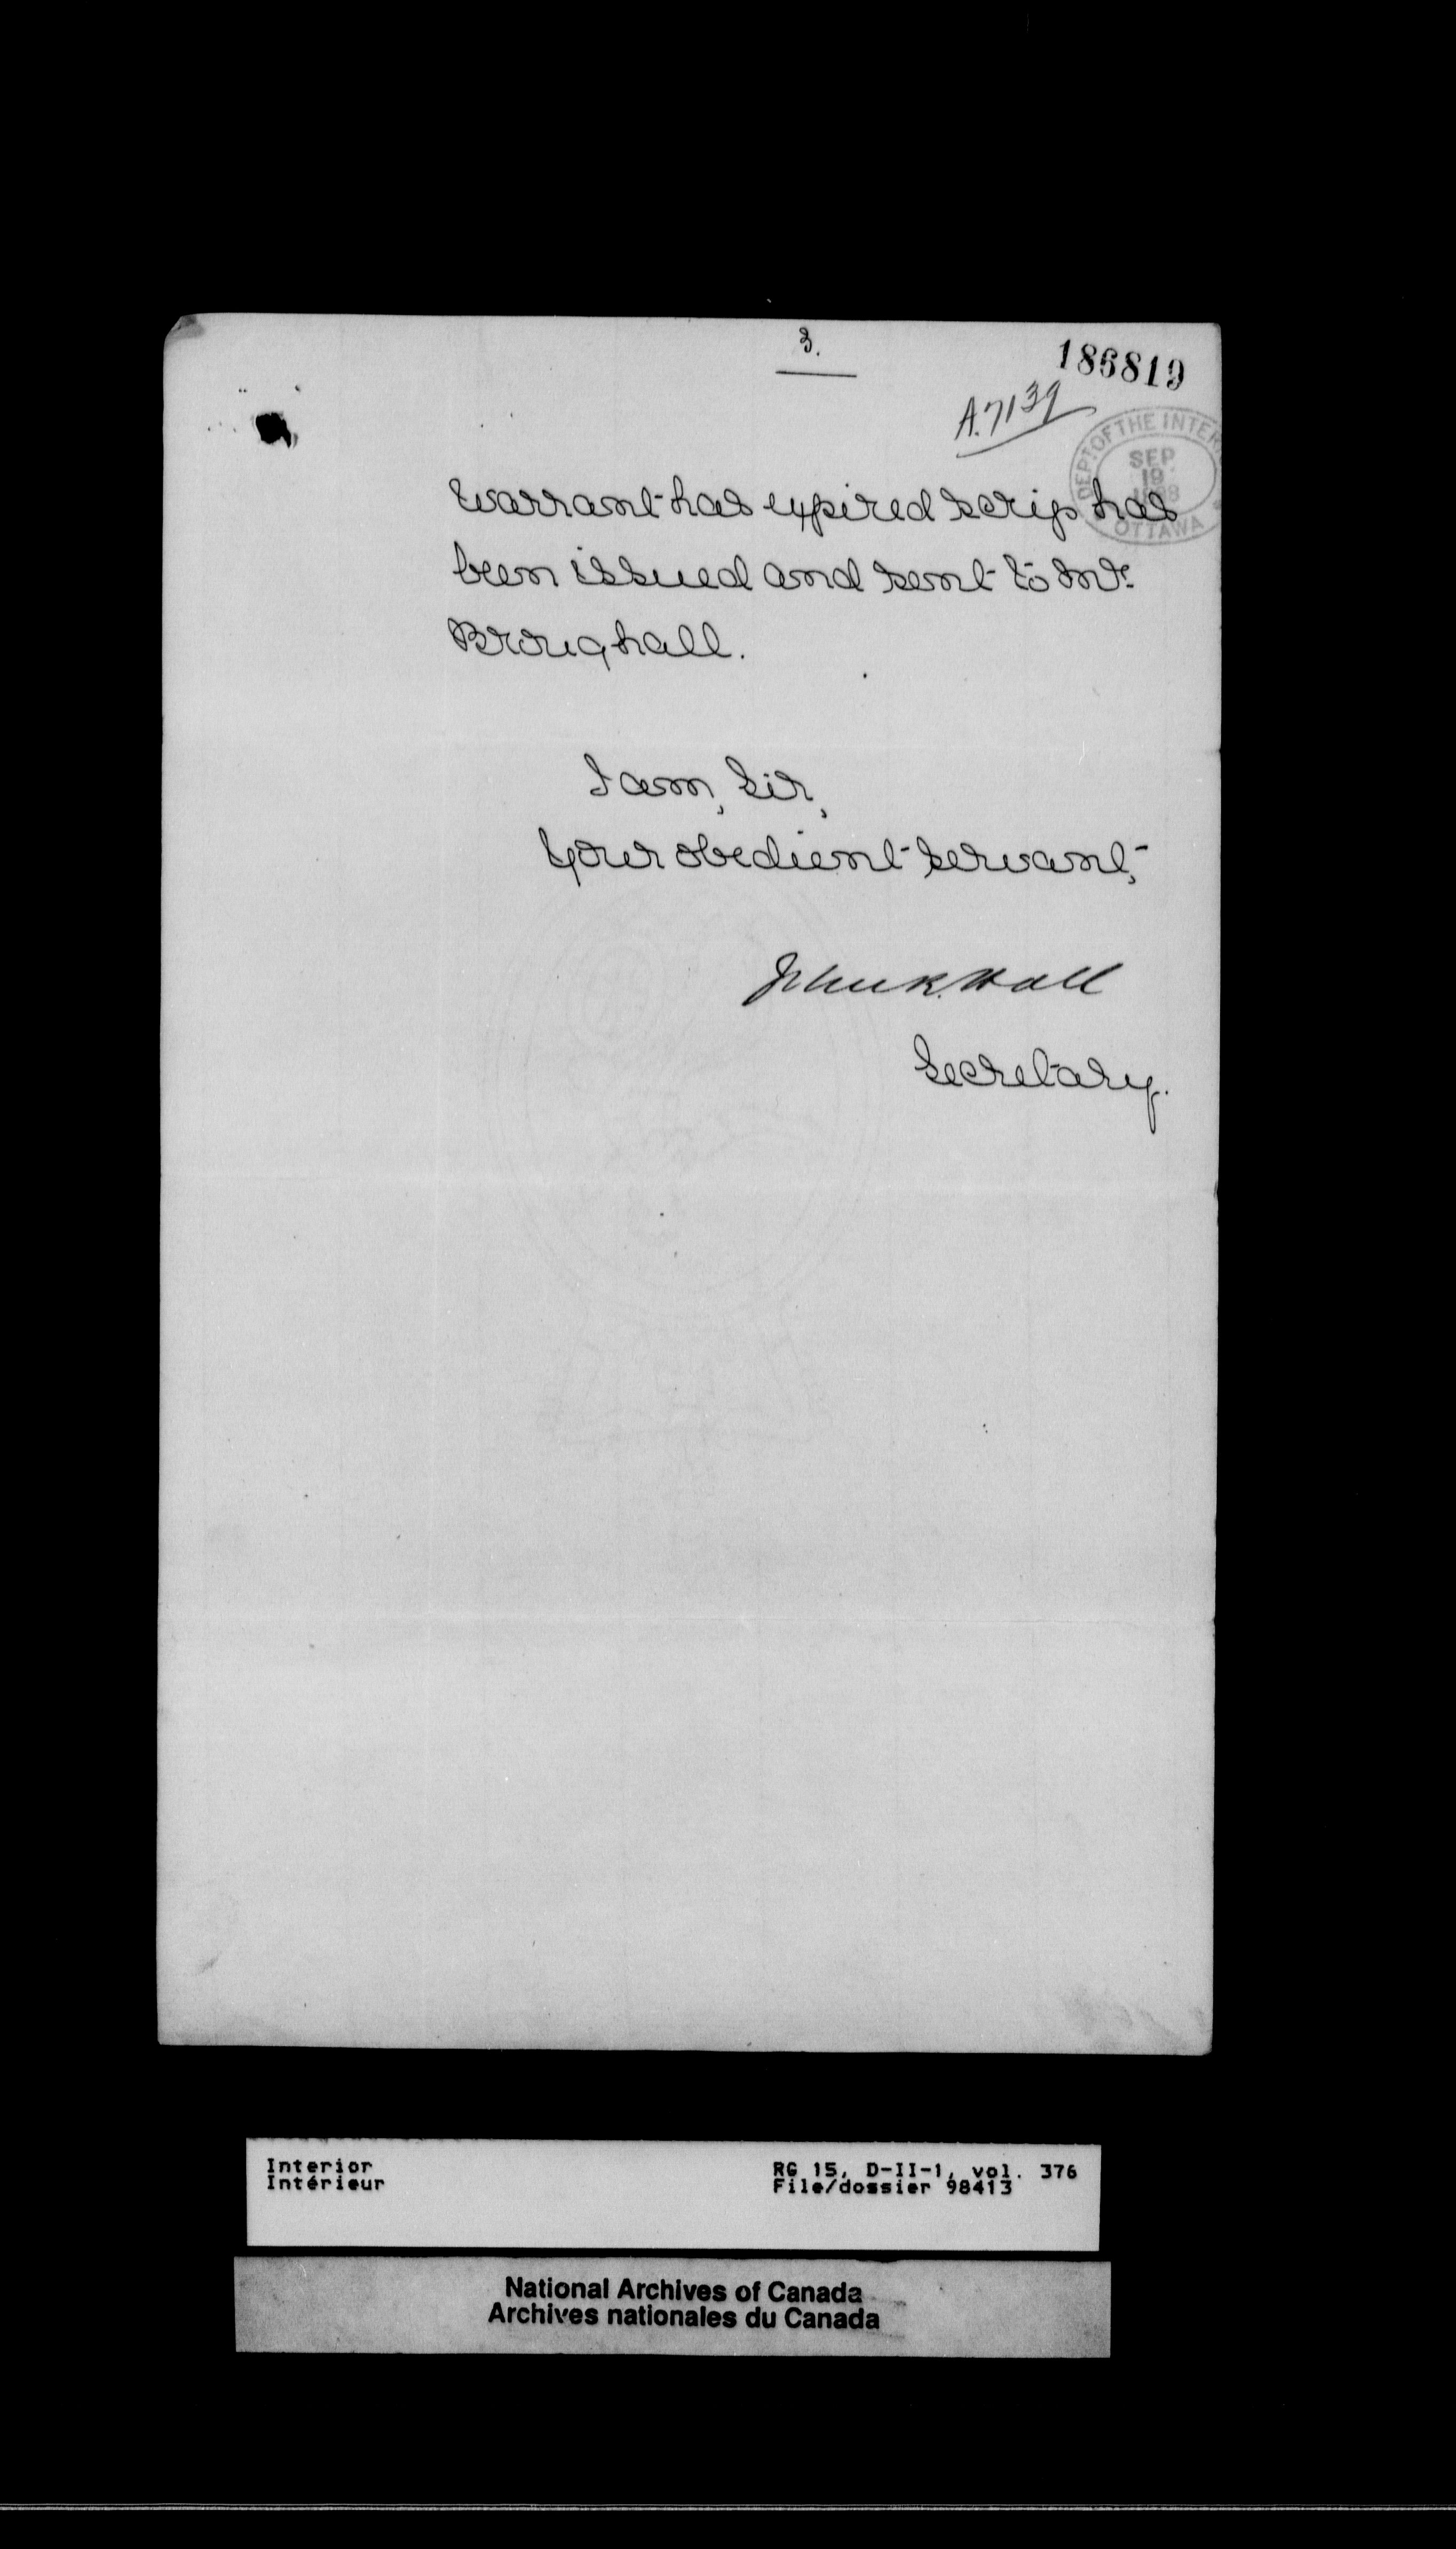 3.
186819
A.7139
DEPT. OF THE INTER
SEP
19
OTTAWA
warrant has expired scrip has
been issued and sent to Mr.
Broughall.
I am, Sir,
Your obedient servant,
John R. Hall
Secretary.
Interior
Intérieur
RG 15, D-II-1, vol. 376
File/dossier 98413
National Archives of Canada
Archives nationales du Canada